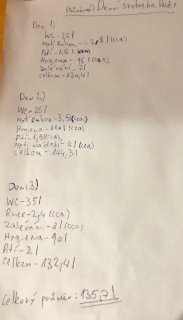 (průměrná) Denní spotřeba vody
Den 1)
WC-26l
Mytí rukou - 2,8l (cca)
Pití-1,6l (cca)
Hygiena-95l (cca)
Zalévání-7l
Celkem-132,4l
Den 2)
WC-25l
Mytí rukou-3,5l (cca)
Hygiena-110l (cca)
Pití-1,8l (cca)
Mytí nádobí-4l (cca)
Celkem-144,3l
Den 3)
WC-35l
Ruce-2,4 (cca)
Zalévání-3l (cca)
Hygiena-90l
Pití-2l
Celkem-132,4l
Celkový průměr:135,7l